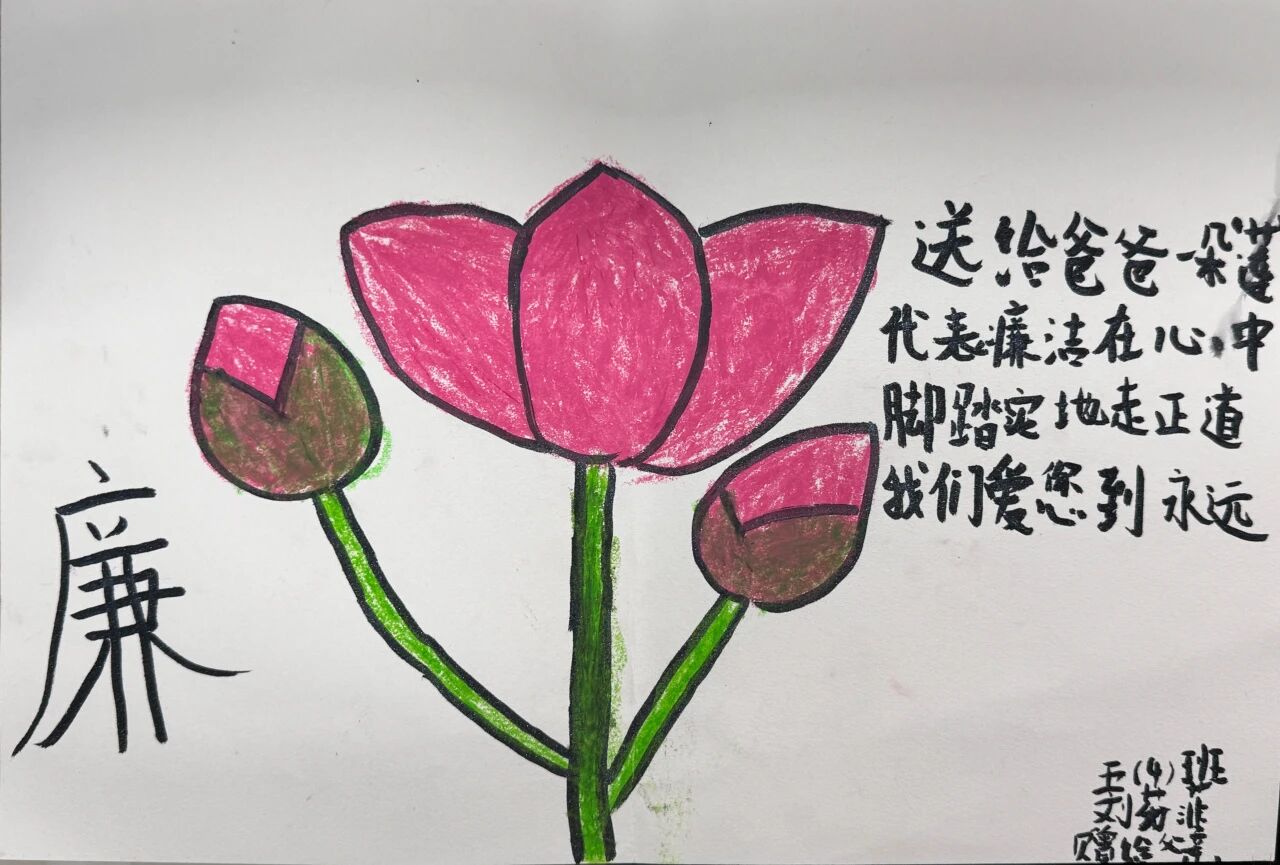 廉
送给爸爸一朵莲
代表廉洁在心中
脚踏实地走正道
我们爱您到永远
五(4)班
刘
赠给父亲